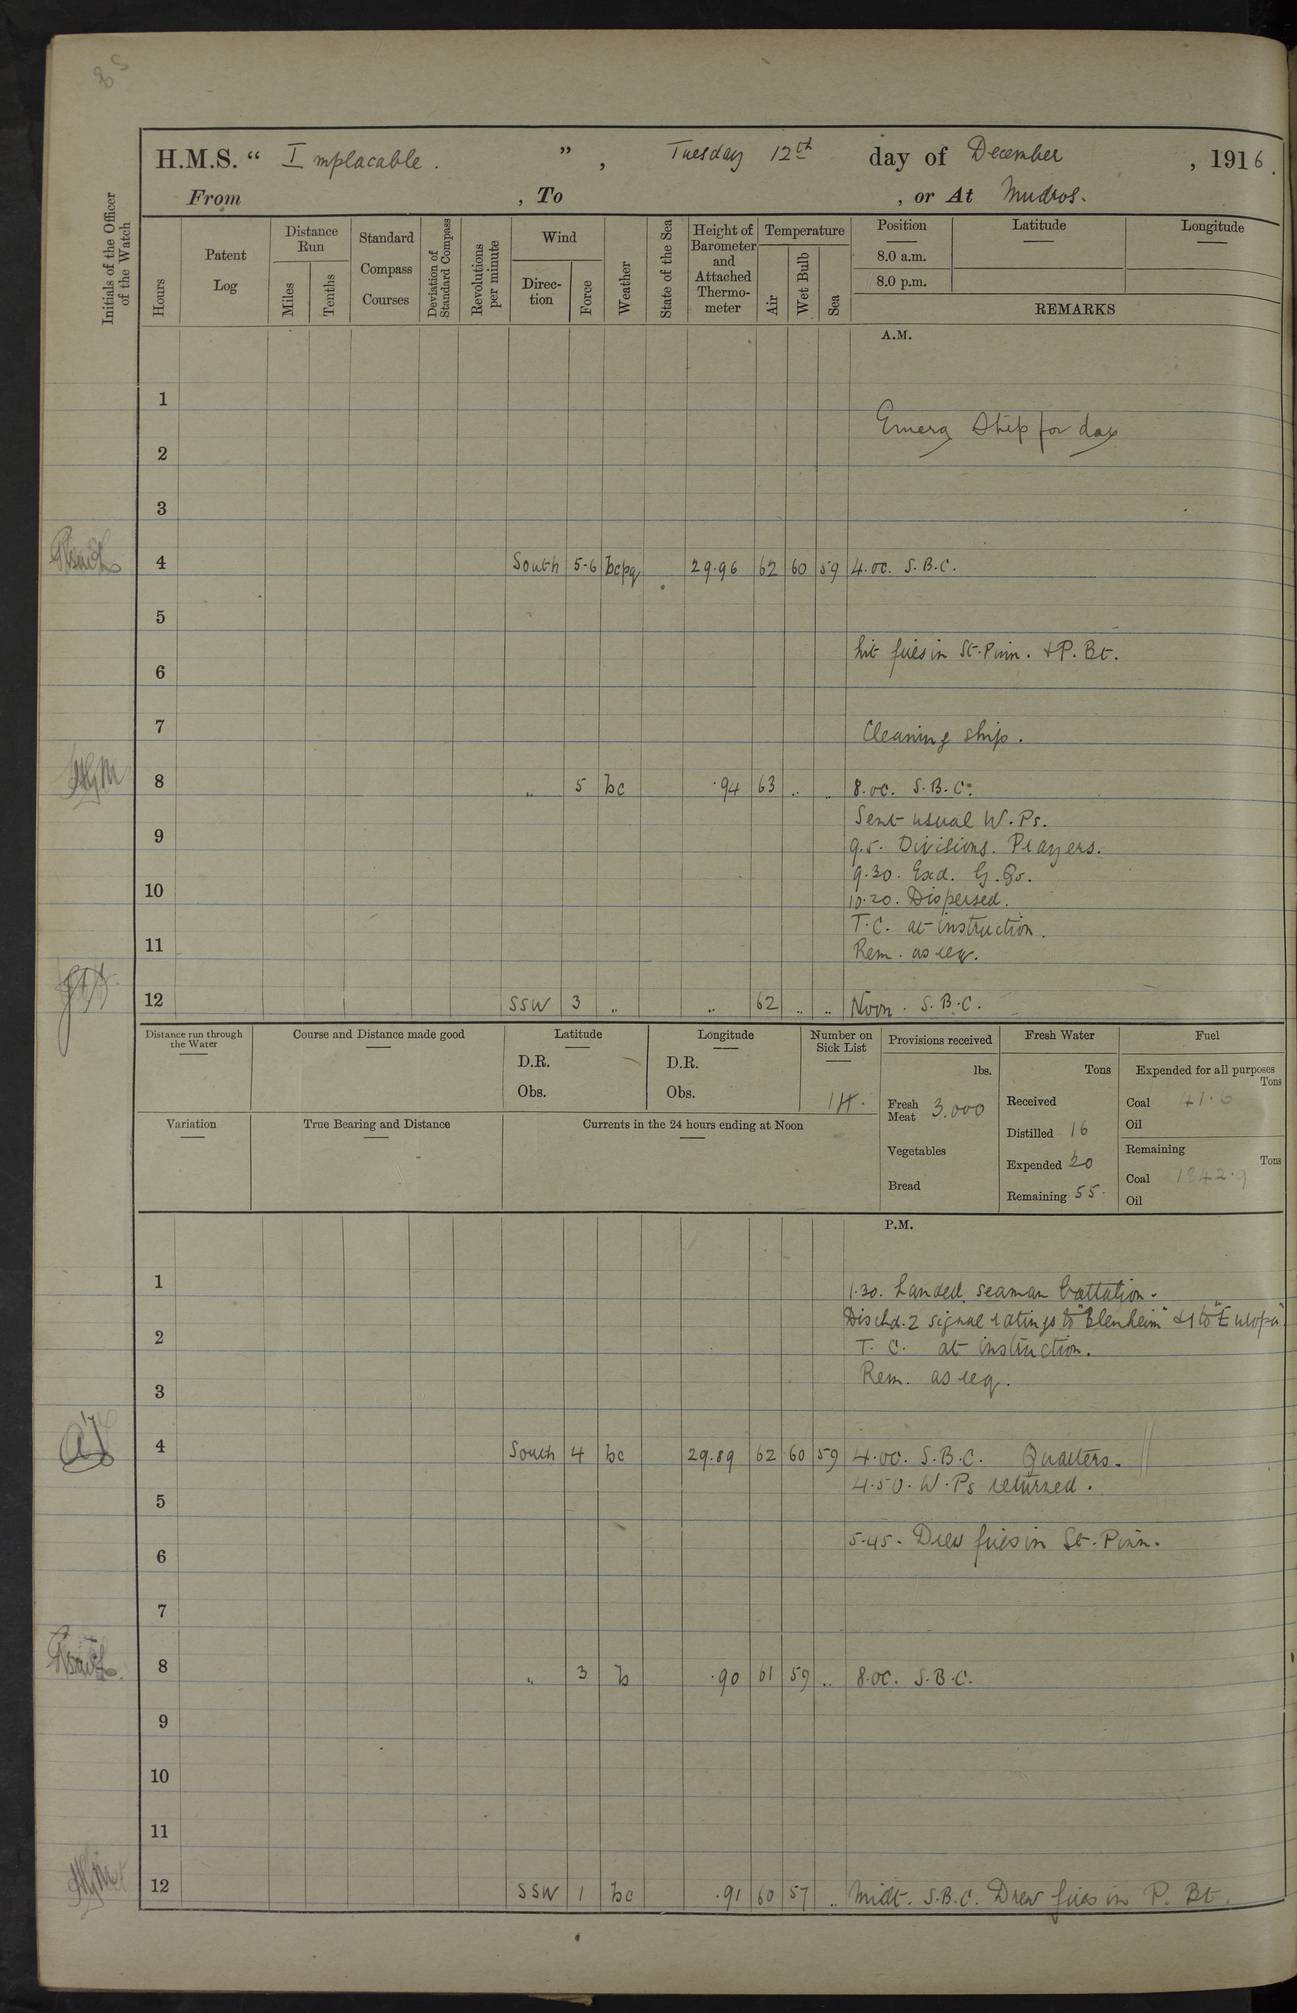 85
H.M.S. “ Implacable. ” , Tuesday 12th day of December , 1916.
From , To , or At Mudros.
Initials of the Officer of the Watch
Hours
Patent Log
Distance Run
Miles
Tenths
Standard Compass Courses
Deviation of Standard Compass
Revolutions per minute
Wind
Direction
Force
Weather
State of the Sea
Height of Barometer and Attached Thermometer
Temperature
Air
Wet Bulb
Sea
Position
8.0 a.m.
8.0 p.m.
Latitude
Longitude
REMARKS
A.M.
1
Emerg Ship for day
2
3
4 South 5-6 bcpq 29.96 62 60 59 4.oc. S.B.C.
5
Lit fires in St. Pinn. & P. Bt.
6
7 Cleaning ship.
8 „ 5 bc .94 63 „ „ 8.oc. S.B.C.
Sent usual W.Ps.
9 9.5. Divisions. Prayers.
9.30. Exd. G. Qrs.
10 10.20. Dispersed.
T.C. at instruction.
11 Rem. as req.
12 SSW 3 „ „ 62 „ „ Noon. S.B.C.
Distance run through the Water
Course and Distance made good
Latitude
D.R.
Obs.
Longitude
D.R.
Obs.
Number on Sick List
14.
Provisions received
lbs.
Fresh Meat 3.000
Vegetables
Bread
Fresh Water
Tons
Received
Distilled 16
Expended 20
Remaining 55.
Fuel
Expended for all purposes
Tons
Coal 41.0
Oil
Remaining
Tons
Coal 1842.9
Oil
Variation
True Bearing and Distance
Currents in the 24 hours ending at Noon
P.M.
1 1.30. Landed seaman battalion.
Dischd. 2 signal ratings to "Blenheim" & 1 to "Europa"
2 T. C. at instruction.
3 Rem. as req.
4 South 4 bc 29.89 62 60 59 4.oc. S.B.C. Quarters.
4.50. W.Ps returned.
5
5.45. Drew fires in St. Pinn.
6
7
8 „ 3 b .90 61 59 „ 8.oc. S.B.C.
9
10
11
12 SSW 1 bc .91 60 57 „ Midt. S.B.C. Drew fires in P. Bt.